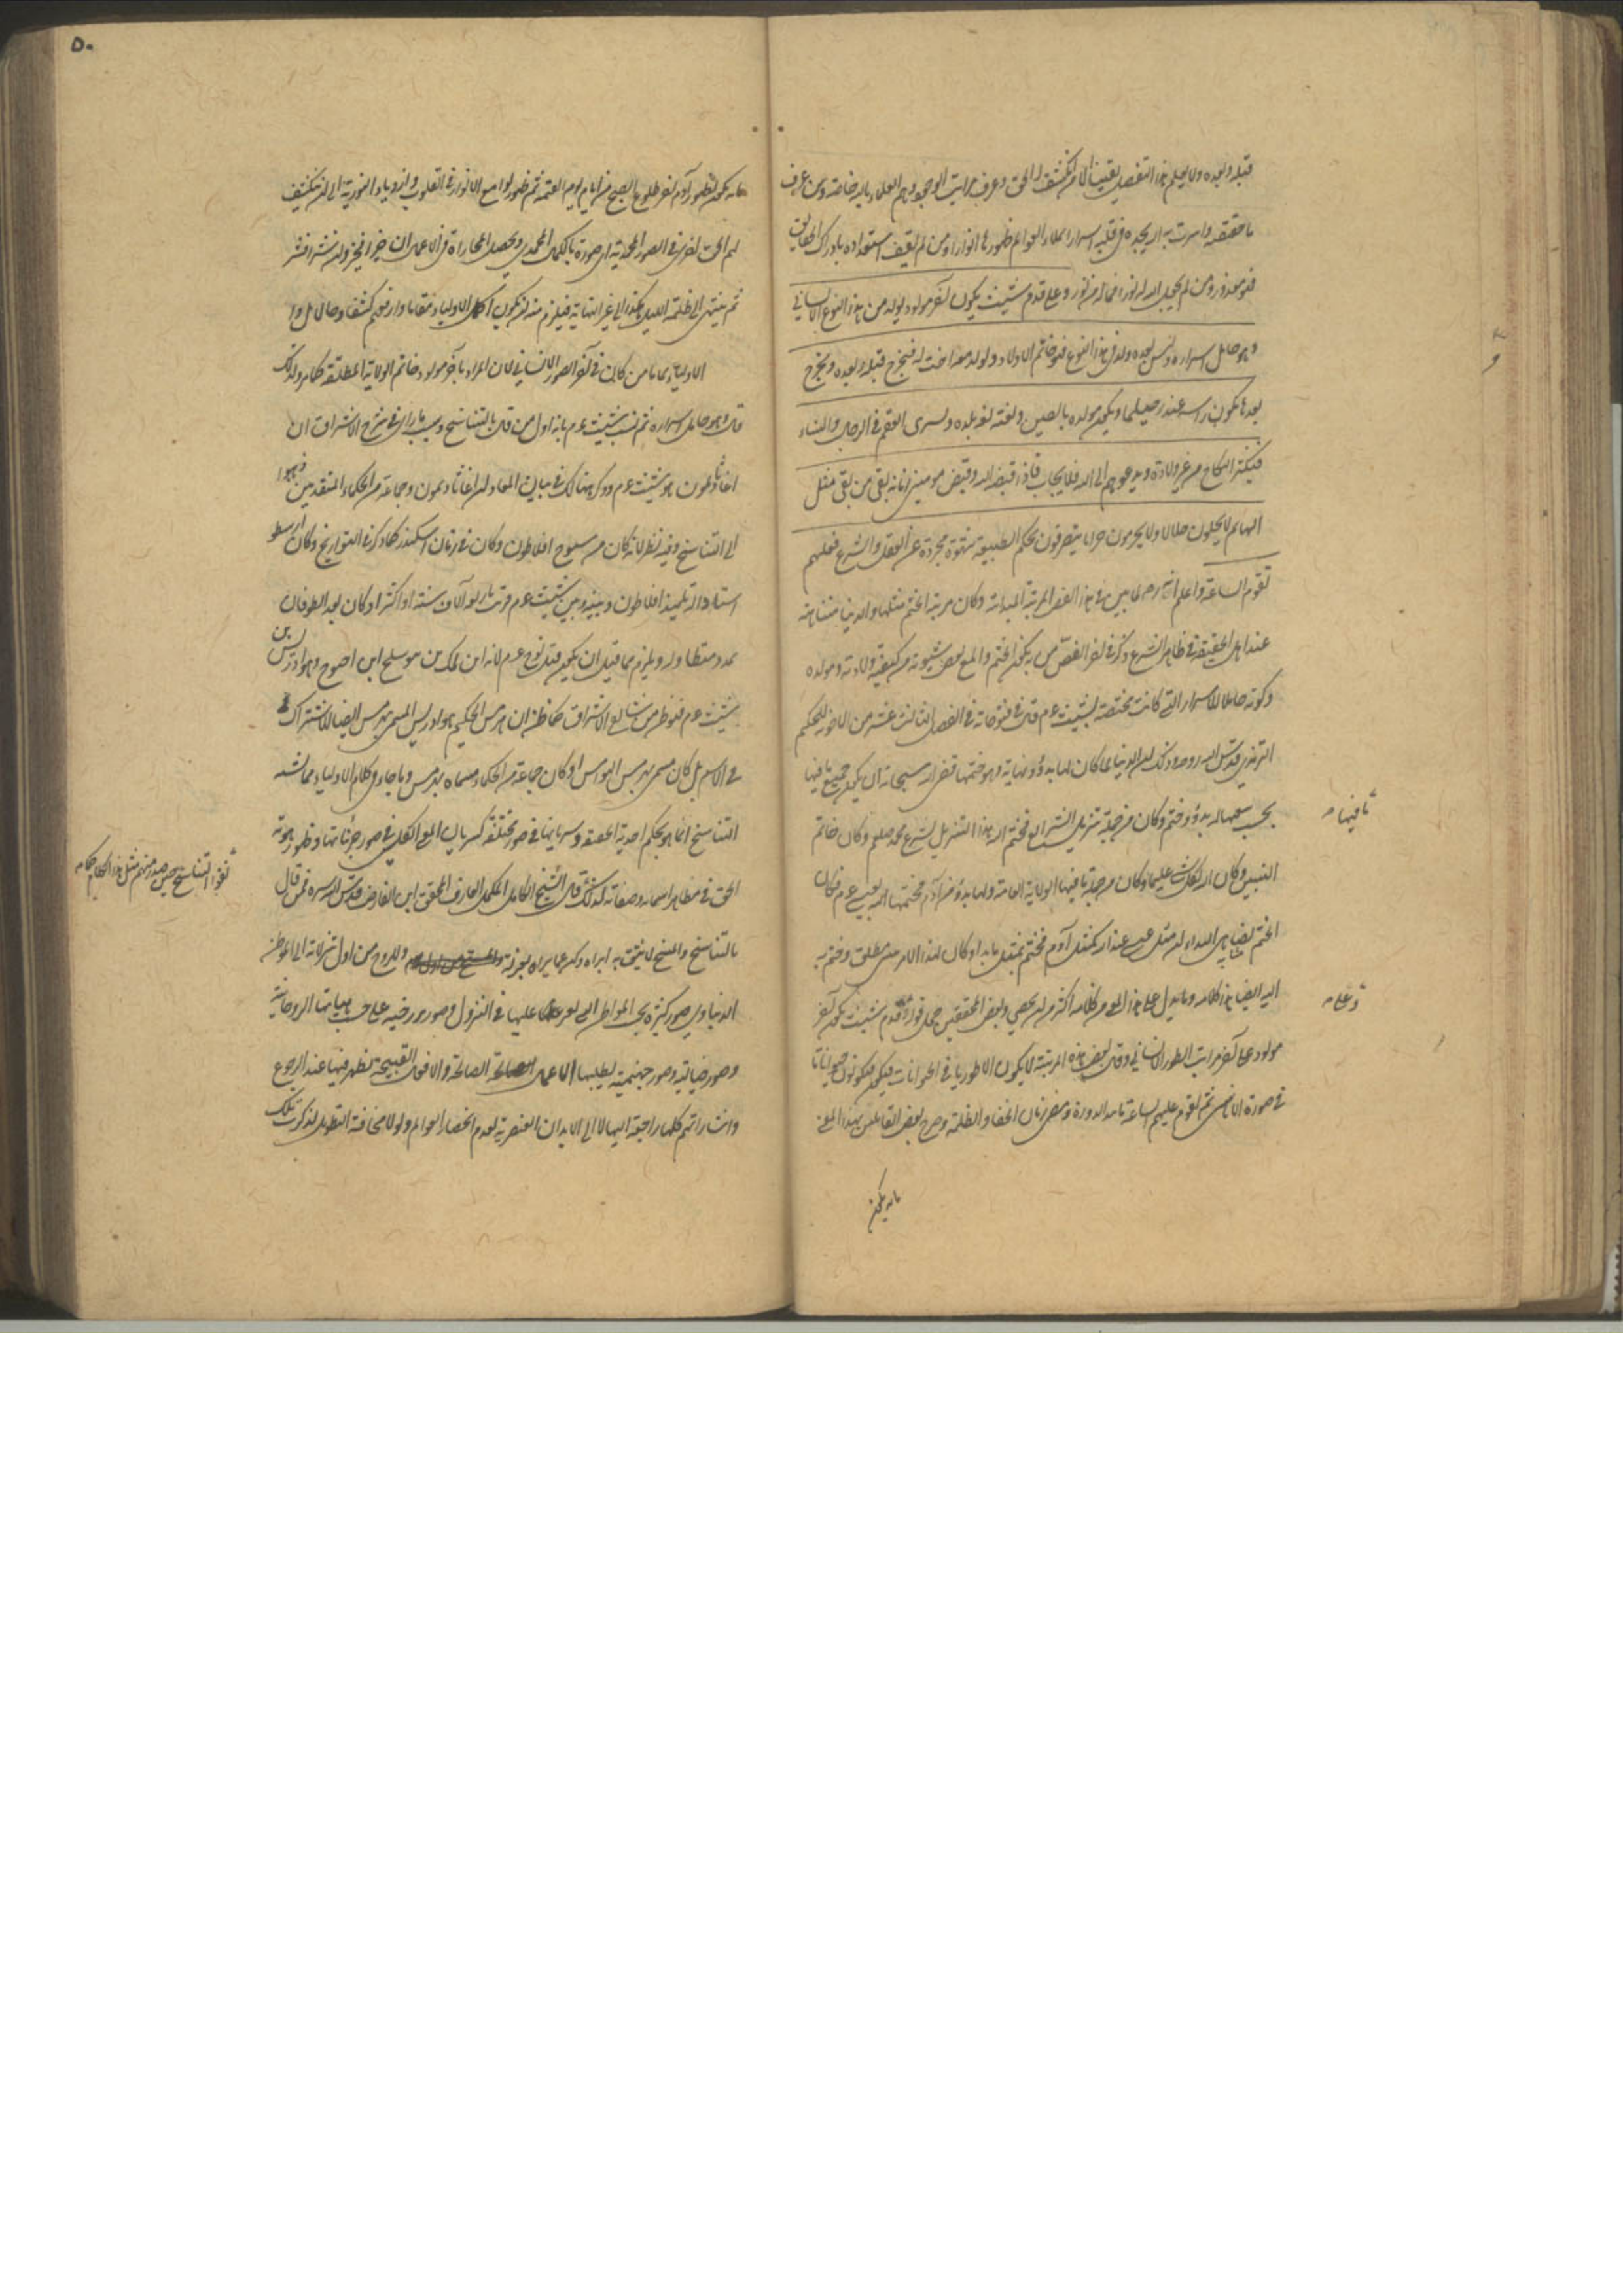 قبله وبعده ولا يعلم هذا التفصيل يقينا الا من انكشف له الحق وعرف مراتب الوجود وهم العلماء بالله خاصة ومن عرف
ما حققته واسرت به اليه يجده في قلبه اسرارا يملاء العوالم ظهورها انوارا ومن لم يقف استعداده بادراك الحقائق
فهو معذور ومن لم يجعل الله له نورا فما له من نور وعلى قدم شيث يكون آخر مولود يولد من هذا النوع الانساني
وهو حامل اسراره وليس بعده ولد في هذا النوع فهو خاتم الاولاد ويولد معه اخت له فتخرج قبله ويخرج
بعدها يكون راسه عند رجليها ويكون مولده بالصين ولغته لغة بلده ويسرى العقم في الرجال والنساء
فيكثر النكاح من غير ولادة ويدعوهم الى الله فلا يجاب فاذا قبضه الله وقبض مومنى زمانه بقى من بقى مثل
البهائم لا يحلون حلالا ولا يحرمون حراما يتصرفون بحكم الطبيعة شهوة مجردة عن العقل والشرع فعليهم
تقوم الساعة واعلم انه رضه لما بين في هذا الفص المرتبة المبدائية وكان مرتبة الختم مثلها والدنيا متناهية
عند اهل الحقيقة في ظاهر الشرع ذكر في آخر الفص من به يكون الختم والمع بعض شيونه من كيفية ولادته ومولده
وكونه حاملا للاسرار التي كانت مختصة بشيث عم قال في فتوحاته في الفصل الثالث عشر من اجوبة للحكيم
الترمذي قدس الله روحه وذلك ان الدنيا لما كان لها بدؤ ونهاية وهو ختمها قضى الله سبحانه ان يكون جميع ما فيها
بحسب نعتها له بدؤ وختم وكان من جملة ما فيها تنزيل الشرائع فختم الله هذا التنزيل بشرع محمد صلعم وكان خاتم
النبيين وكان الله بكل شئ عليما وكان من جملة ما فيها الولاية العامة ولها بدؤ من آدم فختمها الله بعيسى عم فكان
الختم يضاهي البداء ان مثل عيسى عند الله كمثل آدم فختم بمثل ما به بدأ وكان لهذا الامر من مطلق وختم به
اليه ايضا هذا كلامه وما يدل على هذا المعنى من كلامه اكثر من ان يحصى وبعض المحققين حمل قوله وعلى قدم شيث يكون آخر
مولود على آخر مراتب الطور الانساني وقال بعض هذه المرتبة لا يكون الا طورها في الحيوانات فيكون حيوانا
في صورة الانس ثم تقوم عليهم الساعة تمام الدورة ومضى زمان الخفا والظلمة وصرح بعض القائلين بهذا المعنى
بانه يكون
ما فيها
وعلى
٥٠
بانه يكون بظهور آدم آخر طلوع الصبح من ايام يوم القيمة ثم ظهور لوامع الانوار في القلوب وازدياد النورية الى ان ينكشف
لهم الحق في الصور المحمدية اي صورة بالكمال المحمدي ويحصل المجازاة في الاعمال ان خيرا فخيرا وان شرا فشر
ثم ينتهى الى ظلمة الليل هكذا الى غير النهاية فيلزم منه ان يكون اكمل الاولياء مقاما وارفعهم كشفا وحالا من
الاولياء من كان في آخر الصور الانساني لان المراد بآخر مولود خاتم الولاية المطلقة كما مر ولذلك
قال وهو حامل اسراره ثم نسب شيث عم بانه اول من قال بالتناسخ ونسب ما راى في شرح الاشراق ان
اغاثاذيمون هو شيث عم وذكر هنالك في بيان المعاد ان اغاثاذيمون وجماعة من الحكماء المتقدمين ذهبوا
الى التناسخ وفيه نظر لانه كان من شيوخ افلاطون وكان في زمان اسكندر كما ذكر في التواريخ وكان ارسطو
استاذه تلميذ افلاطون وبينه وبين شيث عم قريب باربعة آلاف سنة او اكثر او كان بعد الطوفان
بمدد متطاولة ويلزم مما قيل ان يكون قبل نوح عم لانه ابن لمك بن متوسلخ ابن اخنوخ وهو ادريس بن
شيث عم فهو ظن من شارح الاشراق كما ظن ان هرمس الحكيم هو ادريس المسمى بهرمس ايضا للاشتراك
في الاسم بل كان يسمى بهرمس الهرامس او كان جماعة من الحكماء مسماه بهرمس وما جاء في كلام الاولياء مما يشبه
التناسخ انما هو بحكم احدية الحقيقة وسريانها في صور مختلفة كسريان المعنى الكلي في صور جزئياتها وظهور هوية
الحق في مظاهر اسمائه وصفاته كذلك قال الشيخ الكامل المكمل العارف المحقق ابن الفارض قدس الله سره فمن قال
بالتناسخ والمسخ لايق به ابراء وكن عما يراه بعزلة وللروح من اول تنزلاته الى الموطن
الدنياوي صور كثيرة بحسب المواطن التي يعبر عليها في النزول وصور برزخية على حسب هياتها الروحانية
وصور جنانية وصور جهنمية يطلبها الاعمال الصالحة والافعال القبيحة تظهر فيها عند الرجوع
واشاراتهم كلها راجعة اليها لا الى الابدان العنصرية لعدم انحصار العوالم ولولا مخافة التطويل لذكرت تلك
نفوا التناسخ حين صدر منهم مثل هذا الكلام